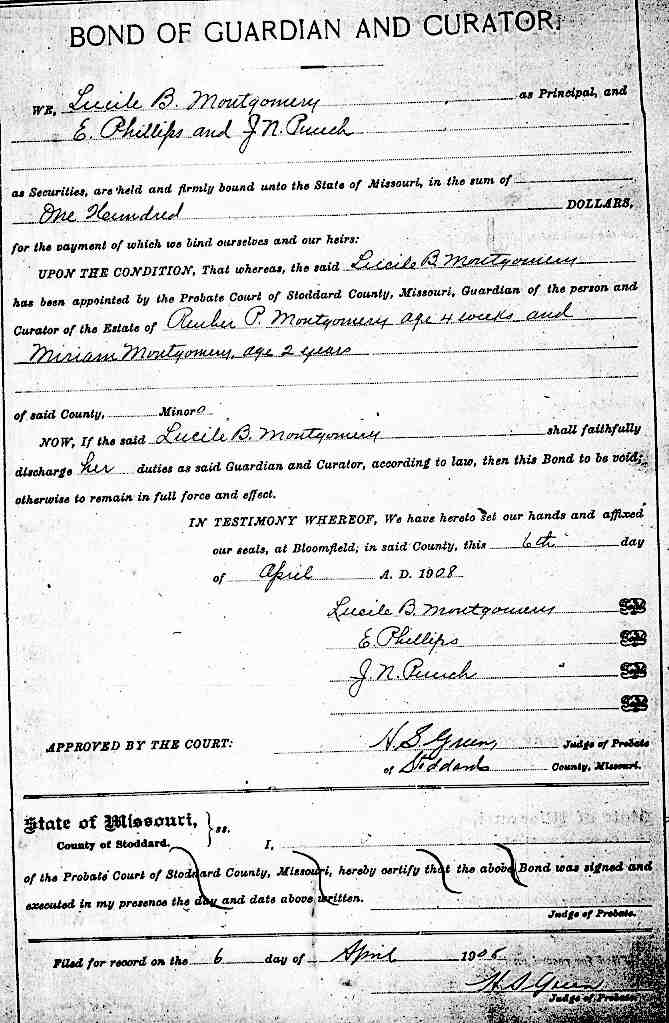 BOND OF GUARDIAN AND CURATOR.
WE, Lucile B. Montgomery as Principal, and
E. Phillips and J. N. Punch
as Securities, are held and firmly bound unto the State of Missouri, in the sum of
One Hundred DOLLARS,
for the payment of which we bind ourselves and our heirs:
UPON THE CONDITION, That whereas, the said Lucile B. Montgomery
has been appointed by the Probate Court of Stoddard County, Missouri, Guardian of the person and
Curator of the Estate of Reuber P. Montgomery age 4 weeks and
Miriam Montgomery, age 2 years
of said County, Minors
NOW, If the said Lucile B. Montgomery shall faithfully
discharge her duties as said Guardian and Curator, according to law, then this Bond to be void;
otherwise to remain in full force and effect.
IN TESTIMONY WHEREOF, We have hereto set our hands and affixed
our seals, at Bloomfield, in said County, this 6th day
of April A. D. 1908
Lucile B. Montgomery
E. Phillips
J. N. Punch
APPROVED BY THE COURT: H. S. Green, Judge of Probate
of Stoddard County, Missouri.
State of Missouri, } ss.
County of Stoddard. I,
of the Probate Court of Stoddard County, Missouri, hereby certify that the above Bond was signed and
executed in my presence the day and date above written.
Judge of Probate.
Filed for record on the 6 day of April 1908
H. S. Green
Judge of Probate.